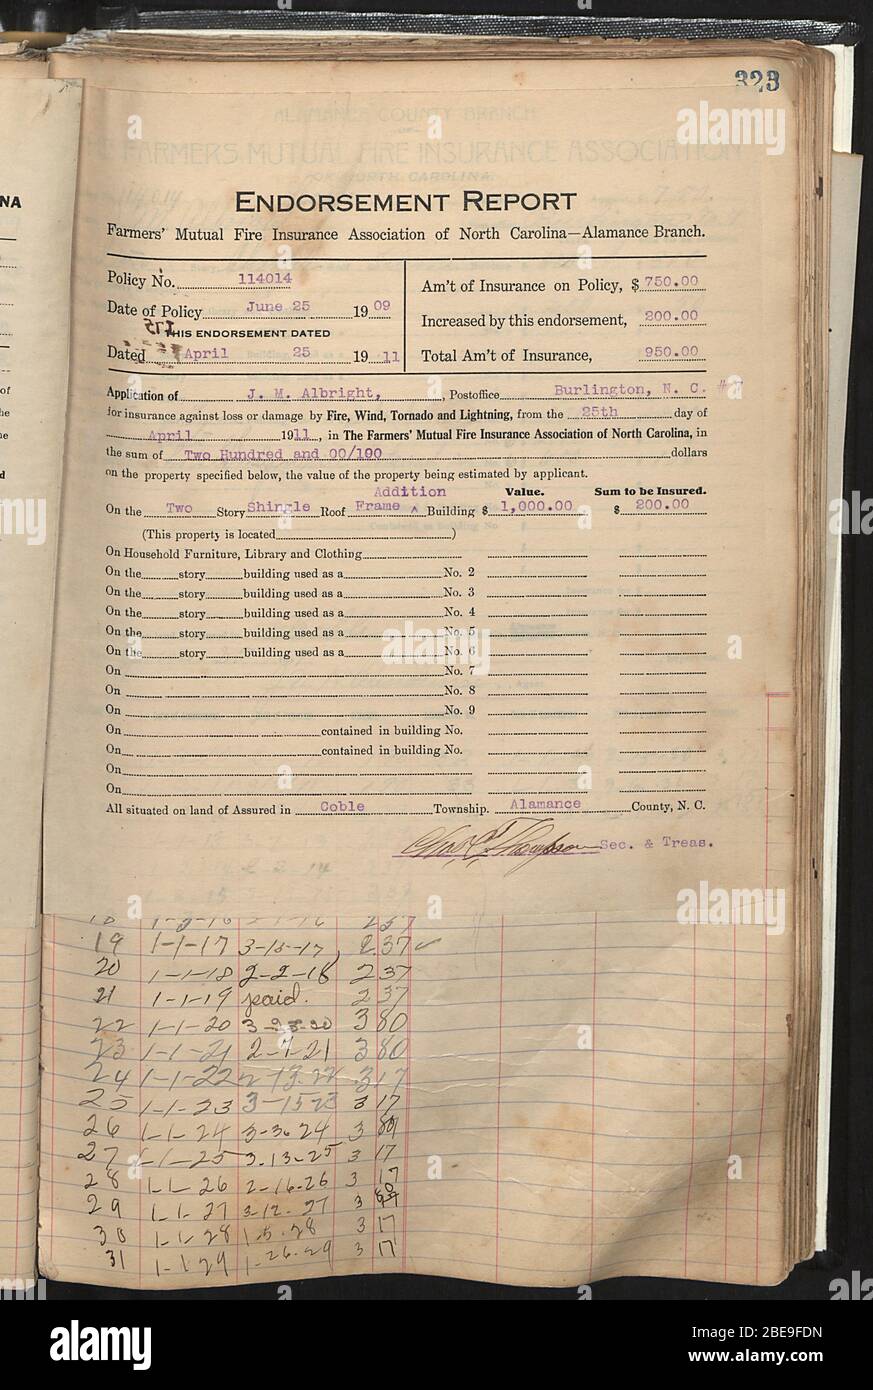 323
ALAMANCE COUNTY BRANCH
FARMERS MUTUAL FIRE INSURANCE ASSOCIATION
NORTH CAROLINA
NA
ENDORSEMENT REPORT
Farmers' Mutual Fire Insurance Association of North Carolina—Alamance Branch.
Policy No. 114014
Am't of Insurance on Policy, $ 750.00
Date of Policy June 25 1909
Increased by this endorsement, 200.00
THIS ENDORSEMENT DATED
Dated April 25 1911
Total Am't of Insurance, 950.00
Application of J. M. Albright, Postoffice Burlington, N. C. # 7
for insurance against loss or damage by Fire, Wind, Tornado and Lightning, from the 25th day of
April 1911, in The Farmers' Mutual Fire Insurance Association of North Carolina, in
the sum of Two Hundred and 00/100 dollars
on the property specified below, the value of the property being estimated by applicant.
Addition Value. Sum to be Insured.
On the Two Story Shingle Roof Frame ^ Building $ 1,000.00 $ 200.00
(This property is located )
On Household Furniture, Library and Clothing
On the story building used as a No. 2
On the story building used as a No. 3
On the story building used as a No. 4
On the story building used as a No. 5
On the story building used as a No. 6
On No. 7
On No. 8
On No. 9
On contained in building No.
On contained in building No.
On
On
All situated on land of Assured in Coble Township. Alamance County, N. C.
Sec. & Treas.
18 1-2-16 237
19 1-1-17 3-15-17 2.37
20 1-1-18 2-2-18 2 37
21 1-1-19 paid. 2 37
22 1-1-20 3-23-20 3 80
23 1-1-21 2-7-21 3 80
24 1-1-22 2-13-22 3 17
25 1-1-23 3-15-23 3 17
26 1-1-24 3-3-24 3
27 1-1-25 3-13-25 3 17
28 1-1-26 2-16-26 3 17
29 1-1-27 3-12-27 3
30 1-1-28 1-5-28 3 17
31 1-1-29 1-26-29 3 17
alamy
Image ID: 2BE9FDN
www.alamy.com